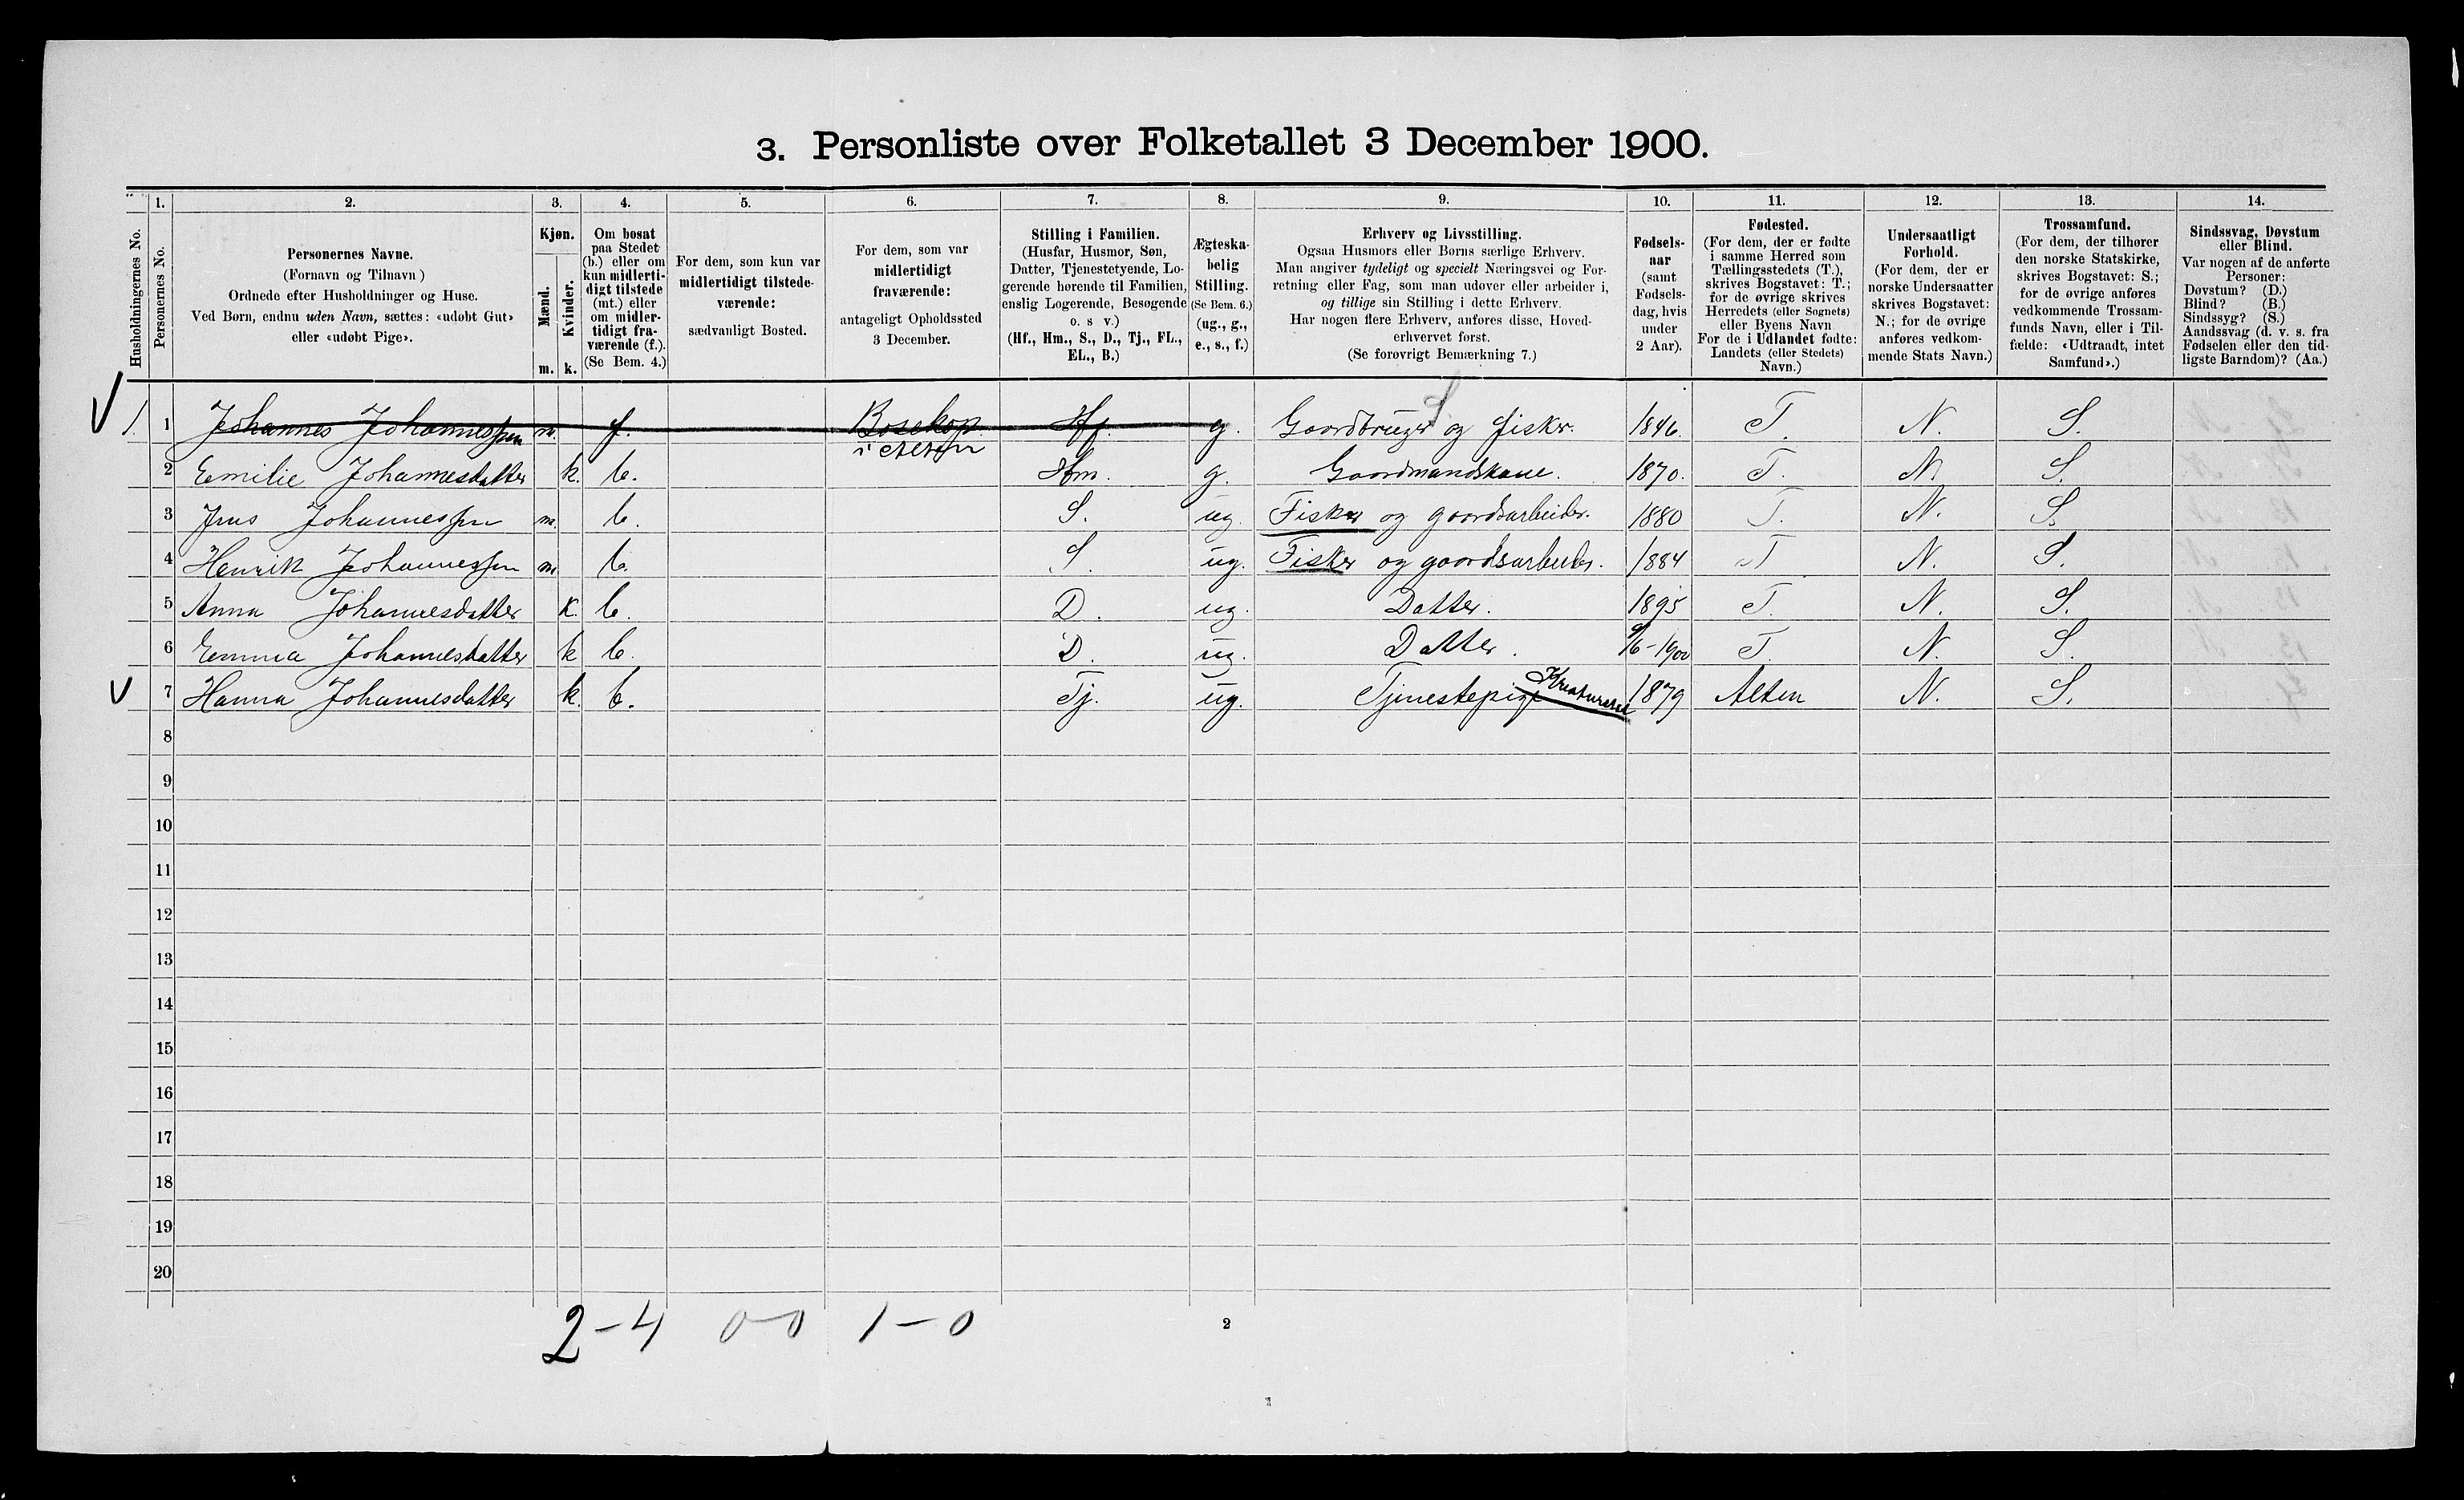 3. Personliste over Folketallet 3 December 1900.
Husholdningernes No.
1. Personernes No.
2. Personernes Navne.
(Fornavn og Tilnavn)
Ordnede efter Husholdninger og Huse.
Ved Børn, endnu uden Navn, sættes: «udøbt Gut»
eller «udøbt Pige».
3. Kjøn.
Mænd. m.
Kvinder. k.
4. Om bosat
paa Stedet
(b.) eller om
kun midlerti-
digt tilstede
(mt.) eller
om midler-
tidigt fra-
værende (f.).
(Se Bem. 4.)
5. For dem, som kun var
midlertidigt tilstede-
værende:
sædvanligt Bosted.
6. For dem, som var
midlertidigt
fraværende:
antageligt Opholdssted
3 December.
7. Stilling i Familien.
(Husfar, Husmor, Søn,
Datter, Tjenestetyende, Lo-
gerende hørende til Familien,
enslig Logerende, Besøgende
o. s v.)
(Hf., Hm., S., D., Tj., FL.,
EL., B.)
8. Ægteska-
belig
Stilling.
(Se Bem. 6.)
(ug., g.,
e., s., f.)
9. Erhverv og Livsstilling.
Ogsaa Husmors eller Børns særlige Erhverv.
Man angiver tydeligt og specielt Næringsvei og For-
retning eller Fag, som man udøver eller arbeider i,
og tillige sin Stilling i dette Erhverv.
Har nogen flere Erhverv, anføres disse, Hoved-
erhvervet først.
(Se forøvrigt Bemærkning 7.)
10. Fødsels-
aar
(samt
Fødsels-
dag, hvis
under
2 Aar).
11. Fødested.
(For dem, der er fødte
i samme Herred som
Tællingsstedets (T.),
skrives Bogstavet: T.;
for de øvrige skrives
Herredets (eller Sognets)
eller Byens Navn
For de i Udlandet fødte:
Landets (eller Stedets)
Navn.)
12. Undersaatligt
Forhold.
(For dem, der er
norske Undersaatter
skrives Bogstavet:
N.; for de øvrige
anføres vedkom-
mende Stats Navn.)
13. Trossamfund.
(For dem, der tilhører
den norske Statskirke,
skrives Bogstavet: S.;
for de øvrige anføres
vedkommende Trossam-
funds Navn, eller i Til-
fælde: «Udtraadt, intet
Samfund».)
14. Sindssvag, Døvstum
eller Blind.
Var nogen af de anførte
Personer:
Døvstum? (D.)
Blind? (B.)
Sindssyg? (S.)
Aandssvag (d. v. s. fra
Fødselen eller den tid-
ligste Barndom)? (Aa.)
1 1 Johannes Johannessen m. f. Bosekop Hf. g. Gaardbruger og fisker. 1846. T. N. S.
2 Emilie Johannesdatter k. b. Hm. g. Gaardmandskone. 1870. T. N. S.
3 Jens Johannessen m. b. S. ug. Fisker og gaardsarbeider. 1880 T. N. S.
4 Henrik Johannessen m. b. S. ug. Fisker og gaardsarbeider. 1884 T N. S.
5 Anna Johannesdatter k. b. D. ug. Datter. 1895 T. N. S.
6 Emma Johannesdatter k b. D. ug. Datter. 9/6-1900 T. N. S.
7 Hanna Johannesdatter k. b. Tj. ug. Tjenestepige 1879 Alten N. S.
8
9
10
11
12
13
14
15
16
17
18
19
20
2-4 0-0 1-0
2